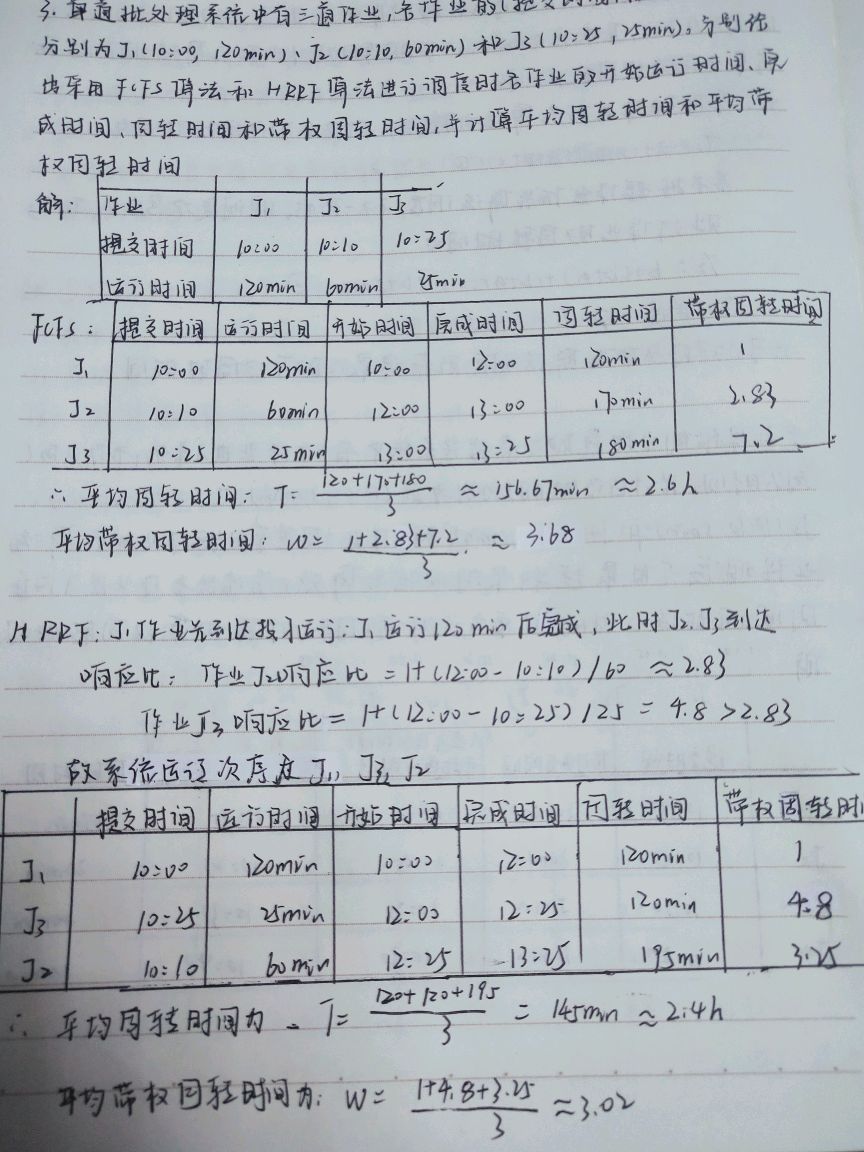 3. 单道批处理系统中有三道作业,各作业的(提交时间
分别为J₁(10:00, 120min)、J2(10:10, 60min)和J3(10:25, 25min)。分别给
出采用FCFS算法和HRRF算法进行调度时各作业的开始运行时间、完
成时间、周转时间和带权周转时间,并计算平均周转时间和平均带
权周转时间
解: 作业 J₁ J₂ J₃
提交时间 10:00 10:10 10:25
运行时间 120min 60min 25min
FCFS: 提交时间 运行时间 开始时间 完成时间 周转时间 带权周转时间
J₁ 10:00 120min 10:00 12:00 120min 1
J2 10:10 60min 12:00 13:00 170min 2.83
J3 10:25 25min 13:00 13:25 180min 7.2
∴ 平均周转时间: T= (120+170+180)/3 ≈ 156.67min ≈ 2.6h
平均带权周转时间: W= (1+2.83+7.2)/3 ≈ 3.68
HRRF: J₁作业先到达找J₁运行:J₁运行120min后完成,此时J2、J3到达
响应比: 作业J2响应比 = 1+(12:00-10:10)/60 ≈ 2.83
作业J3响应比 = 1+(12:00-10:25)/25 = 4.8 > 2.83
故系统运行次序是J₁, J3, J2
提交时间 运行时间 开始时间 完成时间 周转时间 带权周转时
J₁ 10:00 120min 10:00 12:00 120min 1
J3 10:25 25min 12:00 12:25 120min 4.8
J2 10:10 60min 12:25 13:25 195min 3.25
∴ 平均周转时间为 T= (120+120+195)/3 = 145min ≈ 2.4h
平均带权周转时间为: W= (1+4.8+3.25)/3 ≈ 3.02